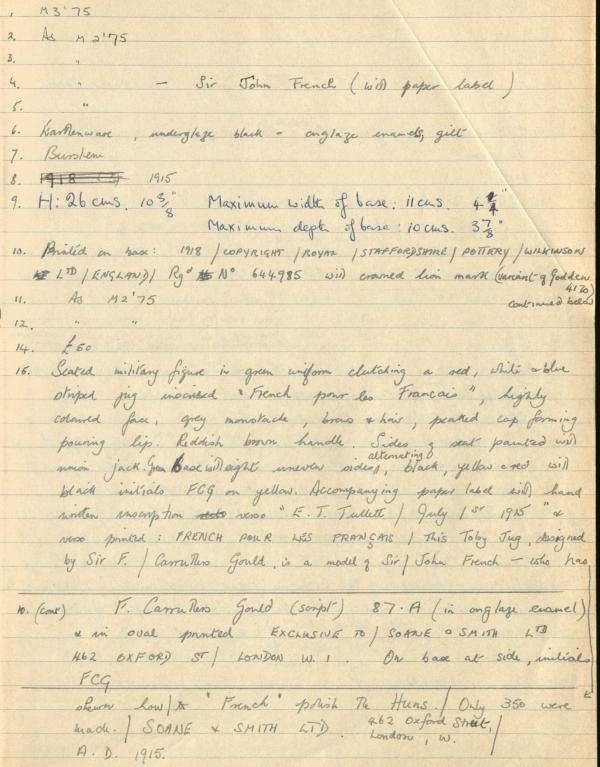 1. M3'75
2. As M2'75
3. "
4. " — Sir John French (with paper label)
5. "
6. Earthenware, underglaze black - onglaze enamels, gilt
7. Burslem
8. 1918 1915
9. H: 26 cms. 10 3/8" Maximum width of base: 11 cms. 4 1/4"
Maximum depth of base: 10 cms. 3 7/8"
10. Printed on base: 1918 / COPYRIGHT / ROYAL / STAFFORDSHIRE / POTTERY / WILKINSON
LTD / ENGLAND / Rgd No 644985 with crowned lion mark (variant of Godden
4170)
11. As M2'75
continued below
12. " "
14. £50
15. Seated military figure in green uniform clutching a red, white & blue
striped jug inscribed "French pour les Francais", highly
coloured face, grey moustache, brows & hair, peaked cap forming
pouring lip. Reddish brown handle. Sides of seat painted with
union jack. Green Base with eight uneven sides, alternating black, yellow & red with
black initials FCG on yellow. Accompanying paper label with hand
written inscription recto verso "E. T. Tullett / July 1st 1915" &
verso printed: FRENCH POUR LES FRANÇAIS / This Toby Jug, designed
by Sir F. / Carruthers Gould, is a model of Sir / John French — who has
10. (cont) F. Carruthers Gould (script) 87·A (in onglaze enamel)
& in oval printed EXCLUSIVE TO / SOANE & SMITH LTD
462 OXFORD ST / LONDON W. 1. On base at side, initials
FCG
shewn how / to "French" polish The Huns. / Only 350 were
made. / SOANE & SMITH LTD. 462 Oxford Street, /
London, W.
A. D. 1915.